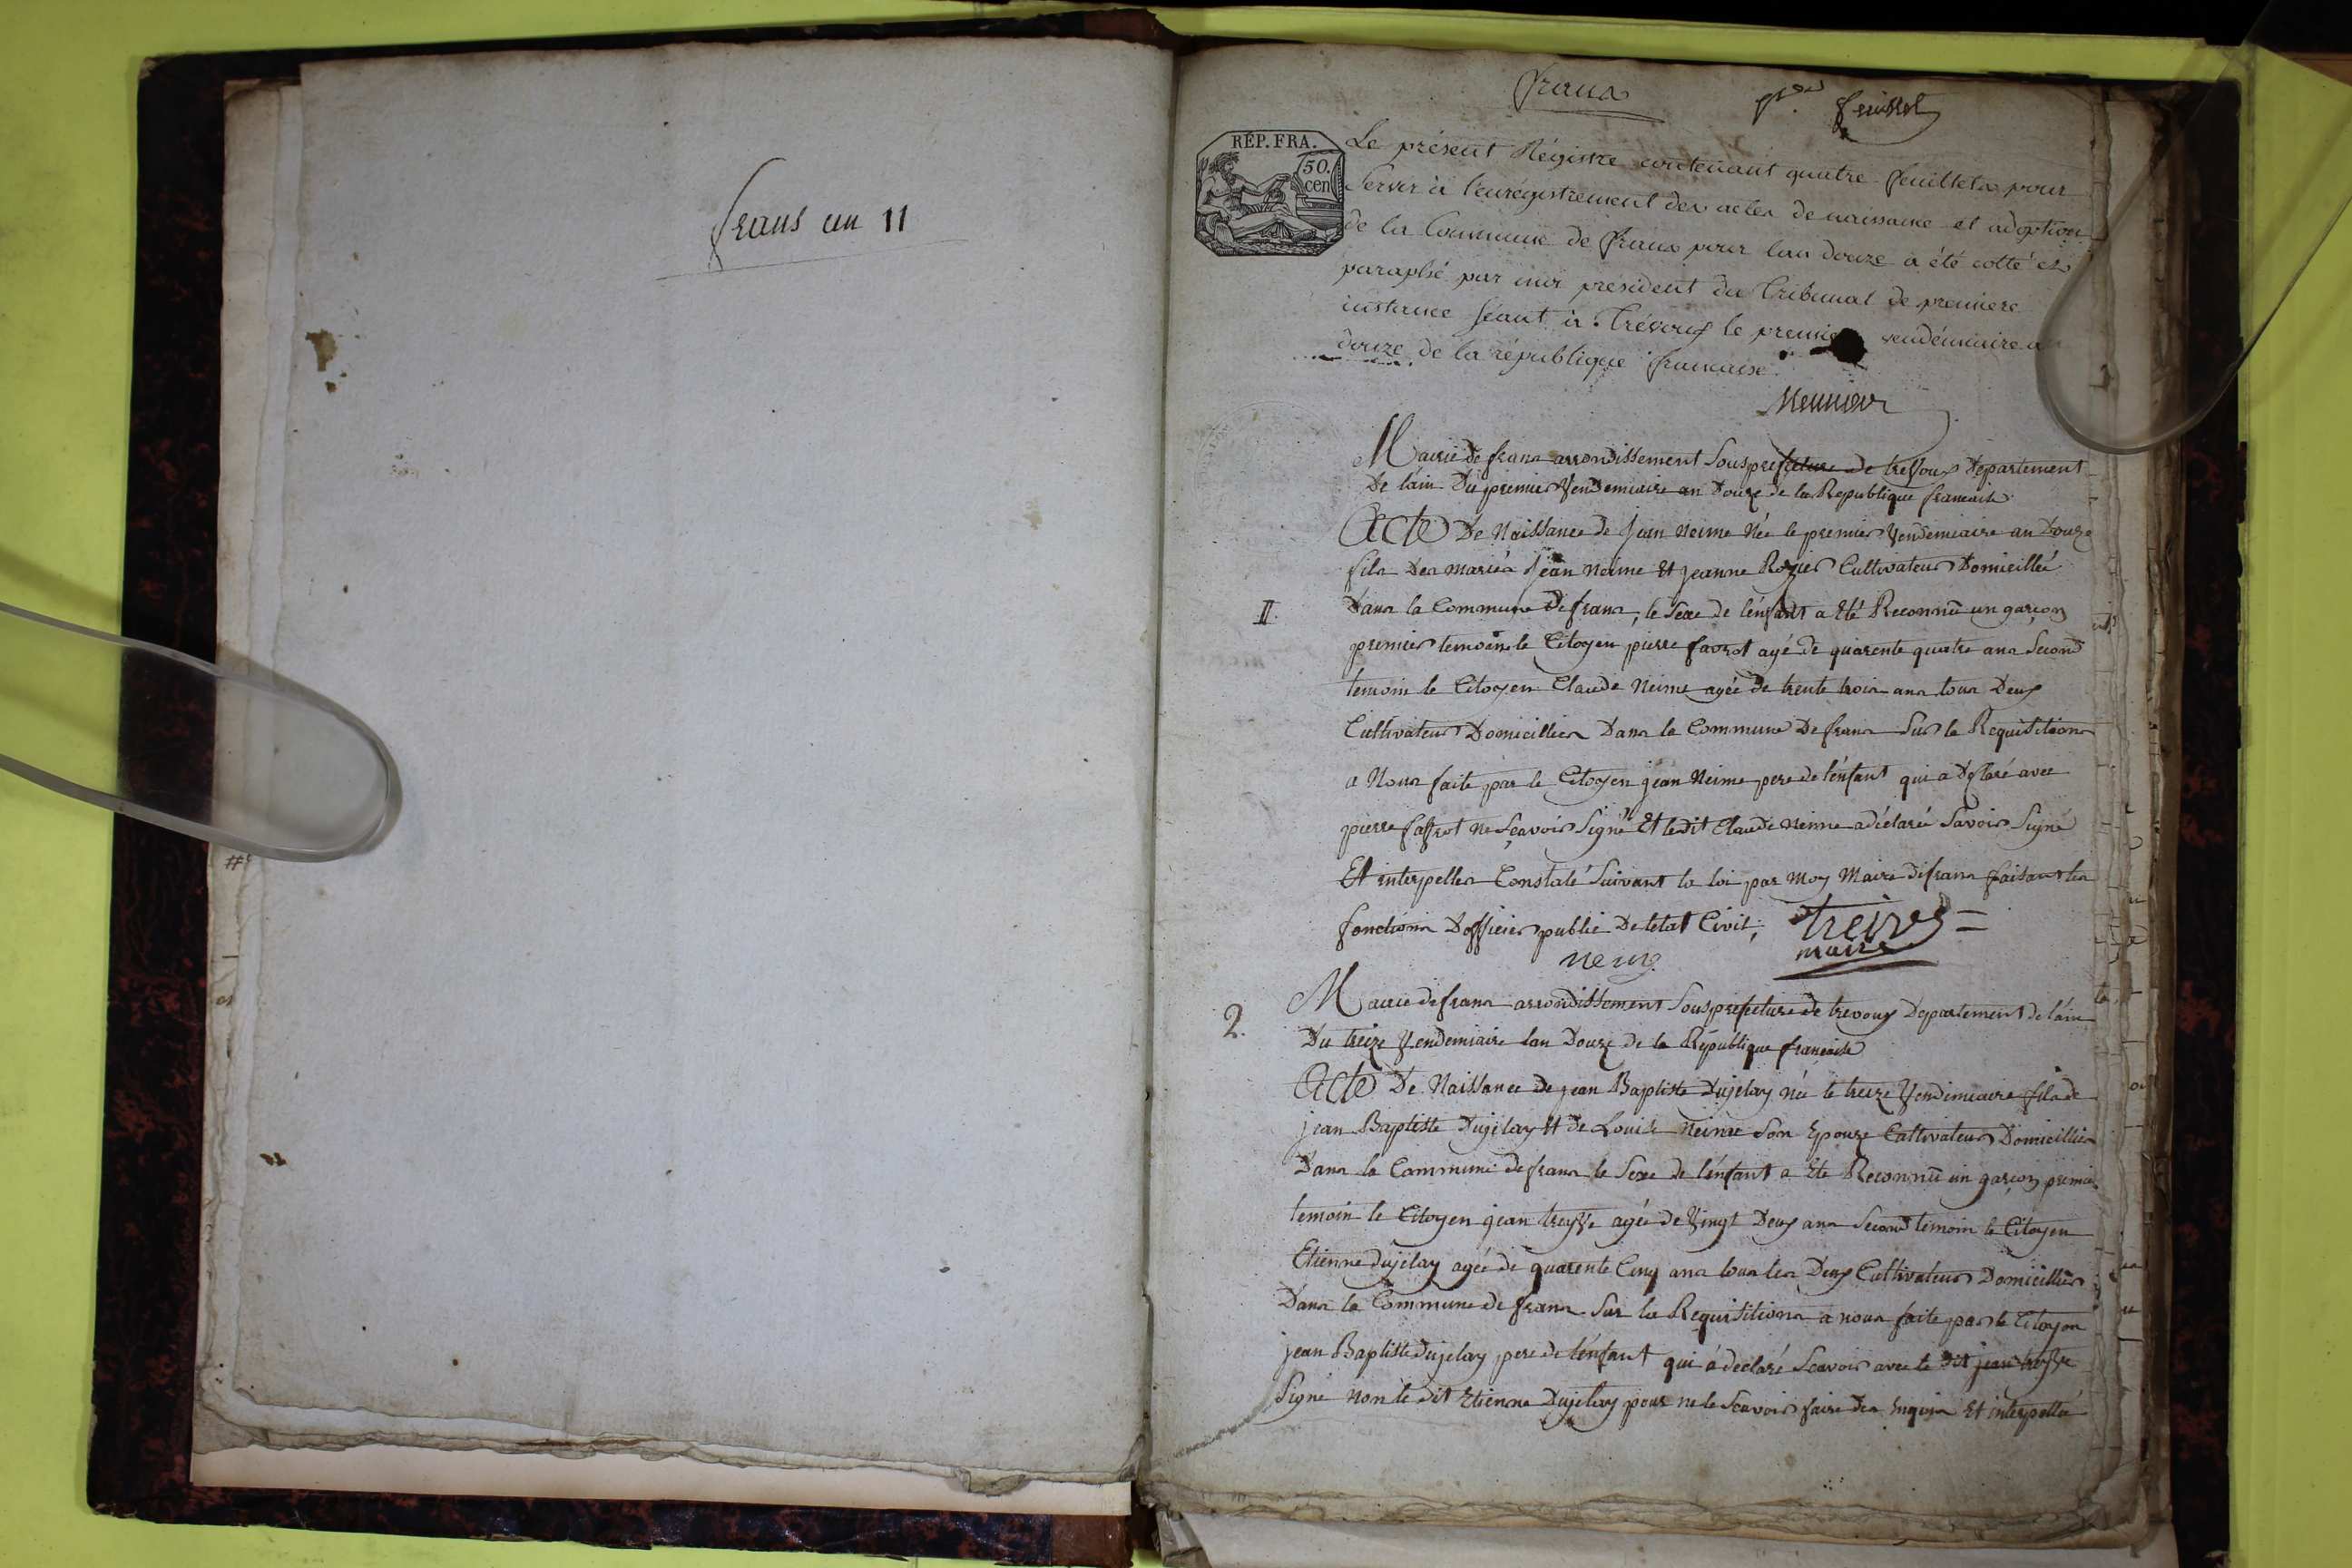 frans an 11
frans
pr. feuillet
RÉP. FRA.
50.
cen
Le présent Régistre contenant quatre feuillets pour
servir à l'enrégistrement des actes de naissance et adoption
de la Commune de frans pour l'an douze a été cotté et
paraphé par moi président du Tribunal de premiere
instance séant à Trévoux le premier vendémiaire a
douze de la république francaise.
Meunier
Mairie de frans arrondissement Sousprefecture de trevoux Departement
De lain Du premier Vendemiaire an Douze de la Republique francaise
Acte De Naissance de jean Neime Née le premier Vendemiaire an Douze
fils Des mariés jean Neime Et jeanne Rozier Cultivateurs Domicillié
II.
Dans la Commune De frans, le Sexe de lénfant a Eté Reconnû un garcon
premier temoin le Citoyen pierre favrot agé de quarente quatre ans Second
temoin le Citoyen Claude Neime agée de trente trois ans tous Deux
Cultivateurs Domicillies Dans la Commune De frans Sur la Requisitions
a Nous faite par le Citoyen jean Neime pere de lénfant qui a Déclaré avec
pierre faffrot ne Sçavoir Signé Et le dit Claude Neime a déclaré Savoir Signé
Et interpelles Constaté Suivant la loi par moy Maire de frans faisant les
fonctions Dofficier public De letat Civil,
maire
2.
Mairie de frans arrondissement Sousprefecture de trevoux Departement de lain
Du treize Vendemiaire lan Douze de la République francaise
Acte De Naissance de jean Baptiste Dujelay née le treize Vendimiaire fils de
jean Baptiste Dujelay Et de Louise Neime Son Epouze Cultivateurs Domicillies
Dans la Commune de frans le Sexe de lénfant a Eté Reconnû un garcon premie
temoin le Citoyen jean treyve agée de Vingt Deux ans Second temoin le Citoyen
Etienne Dujelay agée de quarente Cinq ans tous les Deux Cultivateurs Domicilliés
Dans la Commune de frans Sur la Requisitions a nous faite par le Citoyen
jean Baptiste Dujelay pere de lénfant qui á declaré Scavoir avec le dit jean treyve
Signé non le dit Etienne Dujelay pour ne le Scavoir faire des Enquis Et interpellé